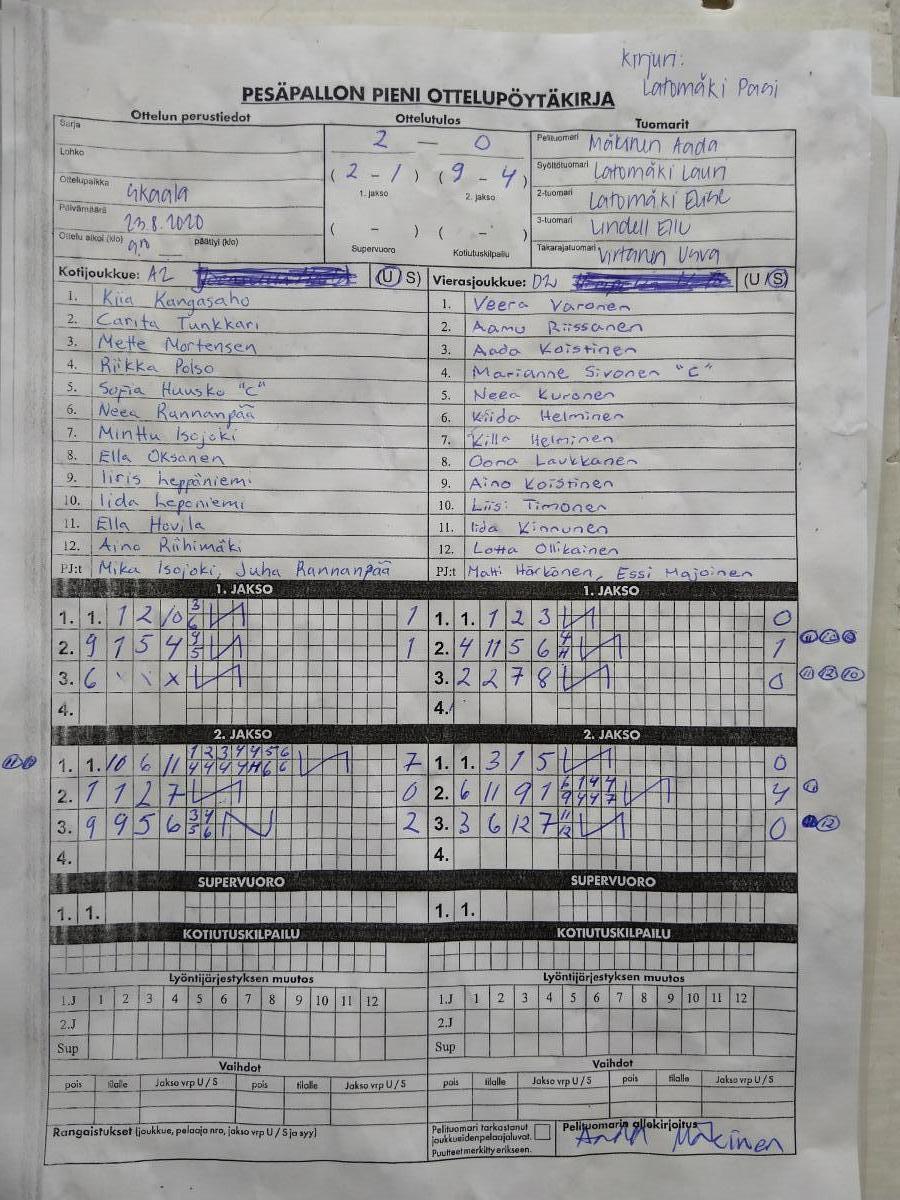 Kirjuri:
Latomäki Pasi
PESÄPALLON PIENI OTTELUPÖYTÄKIRJA
Ottelun perustiedot
Sarja
Lohko
Ottelupaikka Skaala
Päivämäärä 23.8.2020
Ottelu alkoi (klo) päättyi (klo)
Ottelutulos
2 – 0
( 2 – 1 ) ( 9 – 4 )
1. jakso 2. jakso
( – ) ( – )
Supervuoro Kotiutuskilpailu
Tuomarit
Pelituomari Mäkinen Aada
Syöttötuomari Latomäki Lauri
2-tuomari Latomäki Elise
3-tuomari Lindell Ellu
Takarajatuomari Virtanen
Kotijoukkue: A2 (U S)
1. Kiia Kangasaho
2. Carita Tunkkari
3. Mette Mortensen
4. Riikka Polso
5. Sofia Huusko "C"
6. Neea Rannanpää
7. Minttu Isojoki
8. Ella Oksanen
9. Iiris Leppäniemi
10. Iida Leponiemi
11. Ella Hovila
12. Aino Riihimäki
PJ:t Mika Isojoki, Juha Rannanpää
Vierasjoukkue: D2 (U S)
1. Veera Varonen
2. Aamu Riissanen
3. Aada Koistinen
4. Marianne Sivonen "C"
5. Neea Kuronen
6. Kiida Helminen
7. Killa Helminen
8. Oona Laukkanen
9. Aino Koistinen
10. Liisi Timonen
11. Iida Kinnunen
12. Lotta Ollikainen
PJ:t Matti Härkönen, Essi Majoinen
1. JAKSO
1. 1. 1 2 10 3 6 1
2. 9 1 5 4 4 5 1
3. 6 \ \ x
4.
1. JAKSO
1. 1. 1 2 3 0
2. 4 11 5 6 4 11 1
3. 2 2 7 8 0
4.
2. JAKSO
1. 1. 10 6 11 1 2 3 4 4 5 6 7
2. 1 1 2 7 0
3. 9 9 5 6 3 4 5 6 2
4.
2. JAKSO
1. 1. 3 1 5 0
2. 6 11 9 1 4
3. 3 6 12 7 11 12 0
4.
SUPERVUORO
1. 1.
SUPERVUORO
1. 1.
KOTIUTUSKILPAILU
KOTIUTUSKILPAILU
Lyöntijärjestyksen muutos
1.J 1 2 3 4 5 6 7 8 9 10 11 12
2.J
Sup
Lyöntijärjestyksen muutos
1.J 1 2 3 4 5 6 7 8 9 10 11 12
2.J
Sup
Vaihdot
pois tilalle Jakso vrp U / S pois tilalle Jakso vrp U / S
Vaihdot
pois tilalle Jakso vrp U / S pois tilalle Jakso vrp U / S
Rangaistukset (joukkue, pelaaja nro, jakso vrp U / S ja syy)
Pelituomari tarkastanut
joukkueidenpelaajaluvat.
Puutteet merkitty erikseen.
Pelituomarin allekirjoitus
Aada Mäkinen